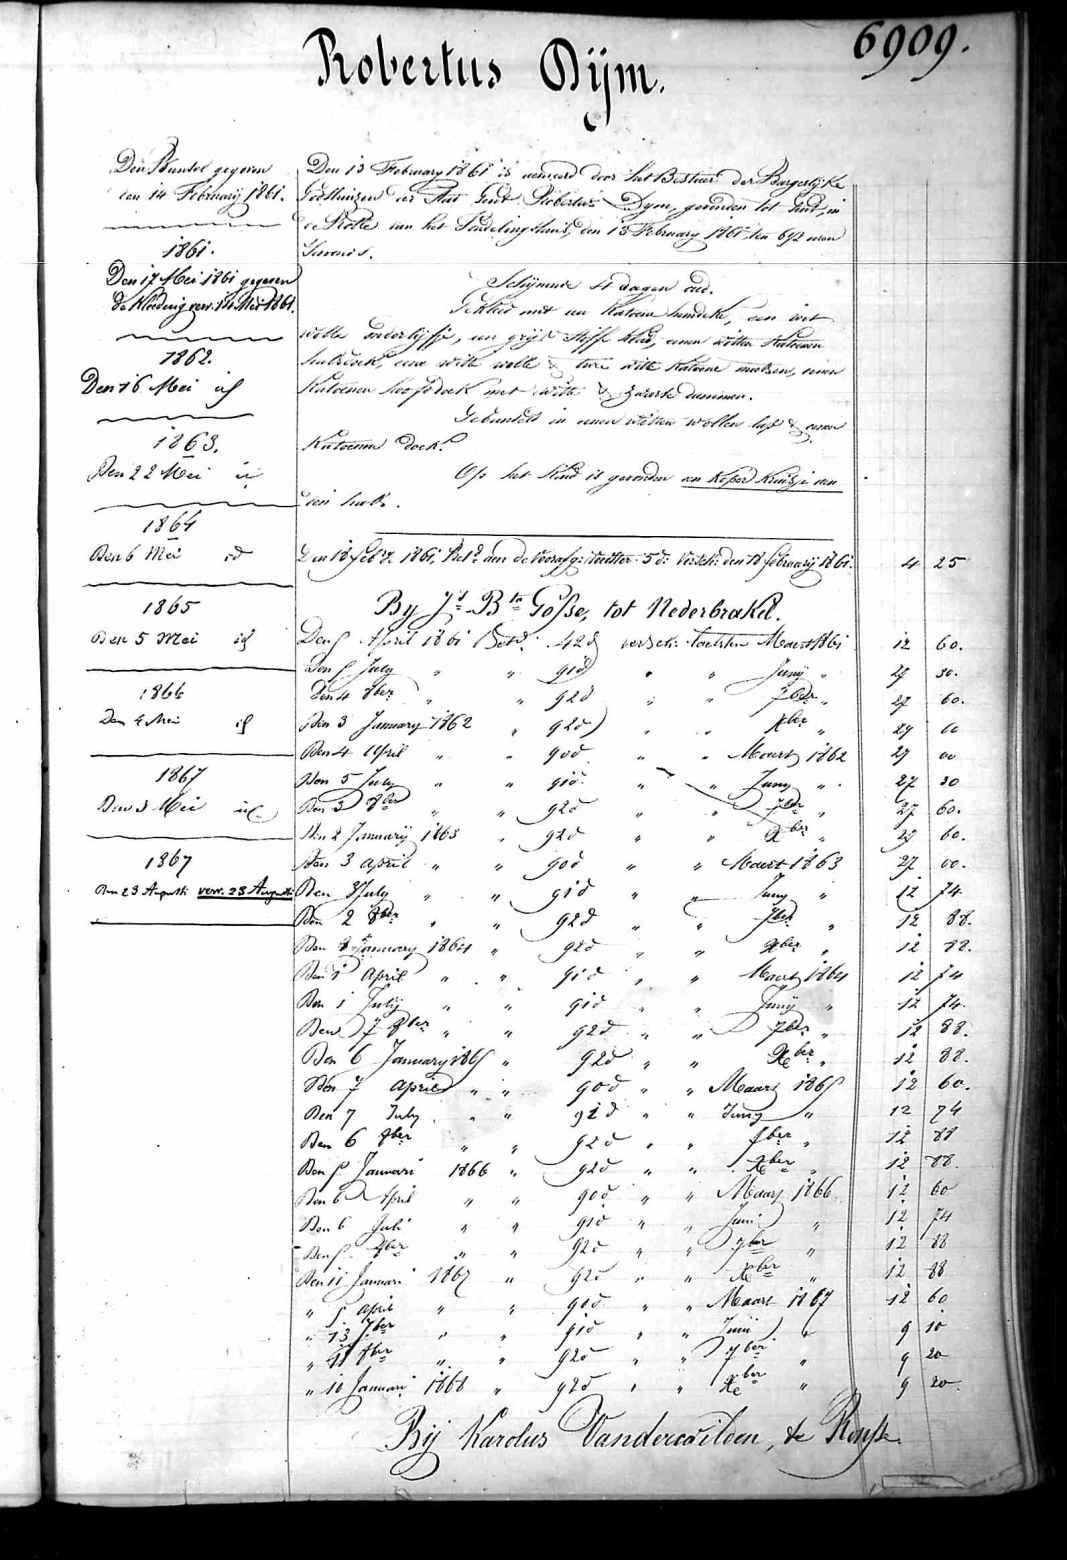 6909.
Robertus Dijm.
Den Bundel gegeven
den 14 Februarij 1861.
1861.
Den 17 Mei 1861 gegeven
de kleeding verv. 14 Mei 1861.
1862.
Den 16 Mei id
1863.
Den 22 Mei id
1864
Den 6 Mei id
1865
Den 5 Mei id
1866
Den 4 Mei id
1867
Den 3 Mei id
1867
Den 23 Augusti verv. 23 Augusti
Den 13 February 1861 is aenveerd door het Bestuer der Burgerlijke
Godshuizen der Stat Gent Robertus Dym, gevonden tot Gent, in
de Rolle van het Vondelingshuis, den 13 February 1861 ten 6 1/2 uren
s'avonds.
Schijnende 4 dagen oud.
Gekleed met een katoen hemdeke, een wit
wolle onderlijfje, een grijs stoffe kleed, eenen witten katoenen
halsdoek, eene witte wolle & twee witte katoene mutsen, eenen
katoenen hoofddoek met witte & zwarte dammen.
Gebundeld in eenen witten wollen lap & eenen
katoenen doek.
Op het kind is gevonden een koper kruisje aen
een
Den 18 feb. 1861, Bet. aen de 5 d. versch. den 18 february 1861. 4 25
By J. Bte Gosse, tot Nederbrakel.
Den 5 April 1861 Bet. 42 d versch. Maert 1861 12 60.
Den 5 July " " 91 d " " Juny " 27 30.
Den 4 8ber " " 92 d " " 7ber " 27 60.
Den 3 January 1862 " 92 d " " Xber "
Den 4 April " " 90 d " " Maert 1862 27 00
Den 5 July " " 91 d " " Juny " 27 30
Den 3 8ber " " 92 d " " 7ber " 27 60.
Den 2 Januarij 1863 " 92 d " " Xber " 27 60.
Den 3 April " " 90 d " " Maert 1863 27 00.
Den 3 July " " 91 d " " Juny " 12 74
Den 2 8ber " " 92 d " " 7ber " 12 88.
Den 8 January 1864 " 92 d " " Xber " 12 88.
Den 1 April " " 91 d " " Maert 1864 12 74
Den 1 July " " 91 d " " Junij " 12 74.
Den 7 8ber " " 92 d " " 7ber " 12 88.
Den 6 January 1865 " 92 d " " Xber " 12 88.
Den 7 April " " 90 d " " Maart 1865 12 60.
Den 7 July " " 91 d " " Juny " 12 74
Den 6 8ber " " 92 d " " 7ber " 12 88
Den 5 Januari 1866 " 92 d " " Xber " 12 88.
Den 6 April " " 90 d " " Maart 1866 12 60
Den 6 Juli " " 91 d " " Juni " 12 74
Den 5 8ber " " 92 d " " 7ber " 12 88
Den 11 Januari 1867 " 92 d " " Xber " 12 88
" 5 April " " 90 d " " Maart 1867 12 60
" 13 7ber " " 91 d " " Juni " 9 10
" 11 8ber " " 92 d " " 7ber " 9 20
" 10 Januari 1868 " 92 d " " Xber " 9 20.
Bij Karolus Vanderwilden, te Ronse.